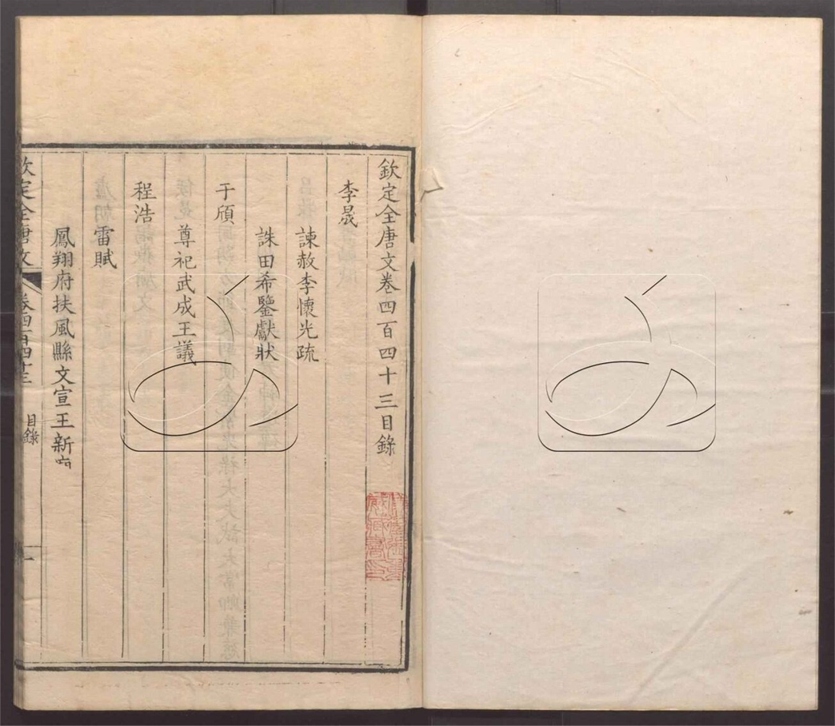 欽定全唐文卷四百四十三目錄
李晟
諫赦李懷光疏
誅田希鑒獻狀
于頎
尊祀武成王議
程浩
雷賦
鳳翔府扶風縣文宣王新
欽定全唐文 卷四百四十三 目錄 一